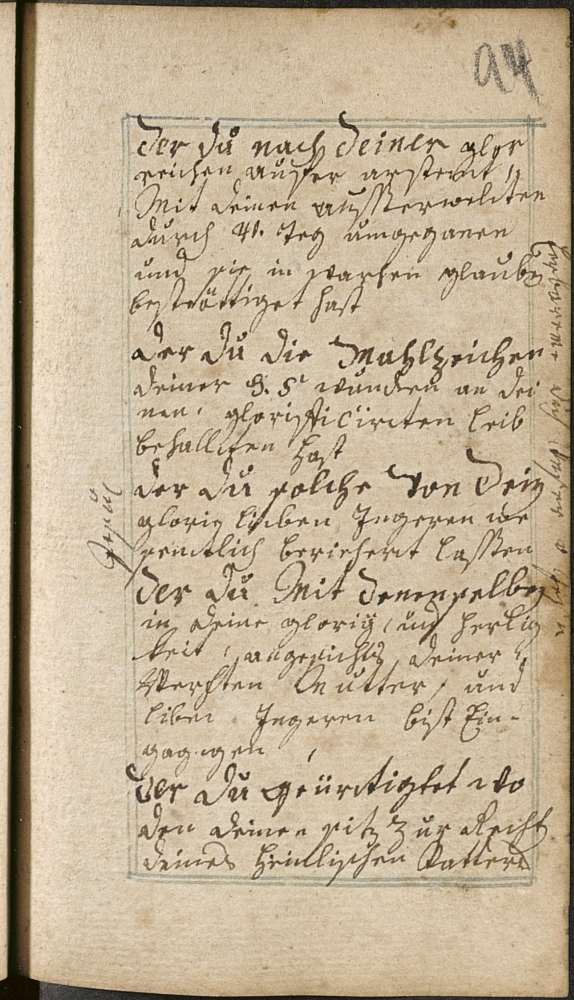 94
Der du nach deiner glor
reichen aufer arstent
Mit deinen ausserwelten
durch 40. tag umgeganen
und sie in warhen glauben
bestättiget hast
der du die Mahlzeichen
deiner H. 5 wunden an dei
nen glorificirten leib
behallten hast
der du solche von dein
glorig liben Jngeren
berichert lassen
Der du Mit denenselben
in deine glorig, und herlig
keit, angesichts deiner
Wersten Mutter, und
liben Jngeren bist Ein-
gaggen
Der du gewürdiget wo
den deinen sitz zur Recht
deines himlischen Vatters